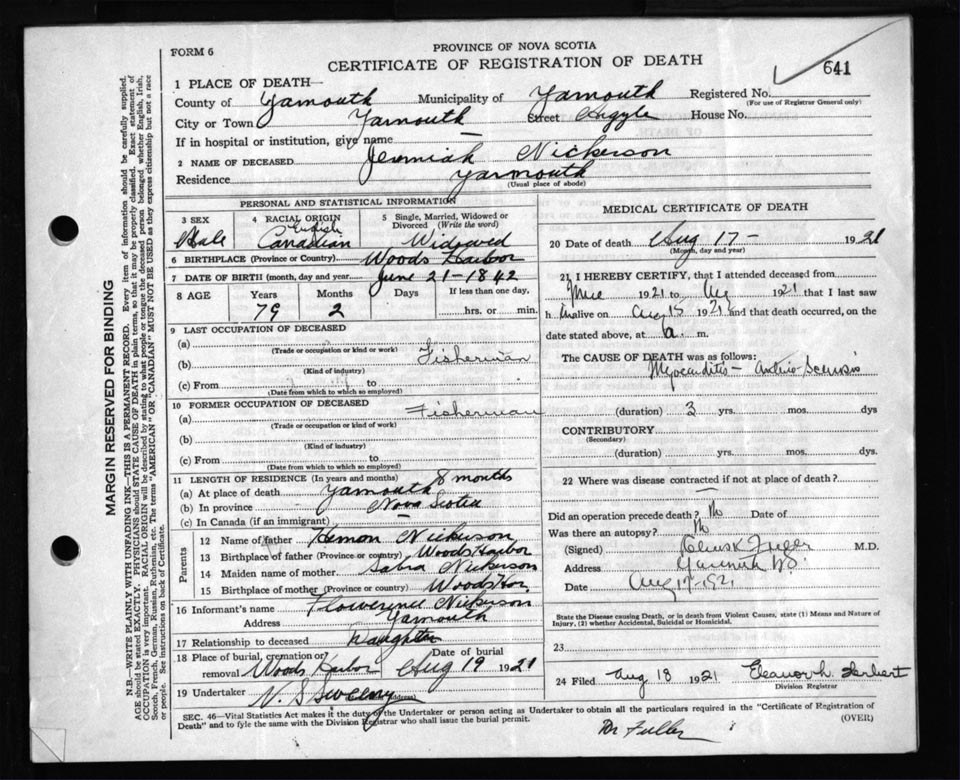 FORM 6
PROVINCE OF NOVA SCOTIA
CERTIFICATE OF REGISTRATION OF DEATH
641
1 PLACE OF DEATH—
County of Yarmouth Municipality of Yarmouth Registered No.
(For use of Registrar General only)
City or Town Yarmouth Street Argyle House No.
If in hospital or institution, give name —
2 NAME OF DECEASED Jeremiah Nickerson
Residence Yarmouth
(Usual place of abode)
PERSONAL AND STATISTICAL INFORMATION
3 SEX Male
4 RACIAL ORIGIN English Canadian
5 Single, Married, Widowed or Divorced (Write the word) Widowed
6 BIRTHPLACE (Province or Country) Woods Harbor
7 DATE OF BIRTH (month, day and year) June 21-1842
8 AGE Years Months Days If less than one day.
79 2 hrs. or min.
9 LAST OCCUPATION OF DECEASED
(a)
(Trade or occupation or kind or work)
(b) Fisherman
(Kind of industry)
(c) From to
(Date from which to which so employed)
10 FORMER OCCUPATION OF DECEASED
(a) Fisherman
(Trade or occupation or kind of work)
(b)
(Kind of industry)
(c) From to
(Date from which to which so employed)
11 LENGTH OF RESIDENCE (In years and months)
(a) At place of death Yarmouth 8 months
(b) In province Nova Scotia
(c) In Canada (if an immigrant)
Parents
12 Name of father Hemon Nickerson
13 Birthplace of father (Province or country) Woods Harbor
14 Maiden name of mother Sabra Nickerson
15 Birthplace of mother (Province or country) Woods Hbr.
16 Informant's name Flowerence Nickerson
Address Yarmouth
17 Relationship to deceased Daughter
18 Place of burial, cremation or removal Woods Harbor Date of burial Aug 19 1921
19 Undertaker V. S Sweeny (Address)
MEDICAL CERTIFICATE OF DEATH
20 Date of death Aug 17- 1921
(Month, day and year)
21 I HEREBY CERTIFY, that I attended deceased from
1921 to Aug 1921 that I last saw
h im alive on Aug 15 1921 and that death occurred, on
date stated above, at a. m.
The CAUSE OF DEATH was as follows:
Myocarditis - Arterio Sclerosis
(duration) 3 yrs. mos. dys
CONTRIBUTORY
(Secondary)
(duration) yrs. mos. dys.
22 Where was disease contracted if not at place of death?
—
Did an operation precede death? No Date of
Was there an autopsy? No
(Signed) Fuller M.D.
Address Yarmouth NS.
Date Aug 17-1921
State the Disease causing Death, or in death from Violent Causes, state (1) Means and Nature of Injury, (2) whether Accidental, Suicidal or Homicidal.
23
24 Filed Aug 18 1921 Eleanor h. Herbert
Division Registrar
SEC. 46—Vital Statistics Act makes it the duty of the Undertaker or person acting as Undertaker to obtain all the particulars required in the "Certificate of Registration of
Death" and to fyle the same with the Division Registrar who shall issue the burial permit.
(OVER)
Dr Fuller
MARGIN RESERVED FOR BINDING
N.B.—WRITE PLAINLY WITH UNFADING INK—THIS IS A PERMANENT RECORD. Every item of information should be carefully supplied.
AGE should be stated EXACTLY. PHYSICIANS should STATE CAUSE OF DEATH in plain terms, so that it may be properly classified. Exact statement of
OCCUPATION is very important. RACIAL ORIGIN will be described by stating to what people or tongue the deceased person belonged whether English, Irish,
Scotch, French, German, Russian, Ruthenian, etc. The terms "AMERICAN" or "CANADIAN" MUST NOT BE USED as they express citizenship but not a race
or people. See instructions on back of Certificate.